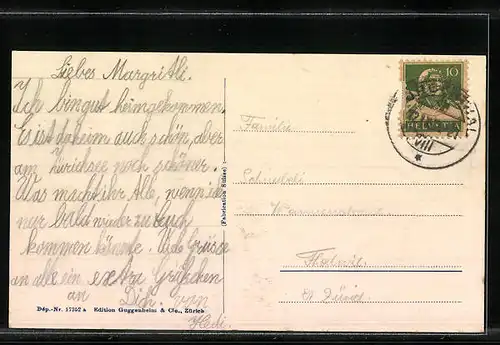 Liebes Margritli.
Ich bin gut heimgekommen.
Es ist daheim auch schön, aber
am Zürichsee noch schöner.
Was macht ihr Alle, wenn ich
nur bald wieder zu Euch
kommen könnte. Viele Grüsse
an alle ein extra Grüsschen
an Dich. von
Hedi.
Dép.-Nr. 17352 a Edition Guggenheim & Co., Zürich
(Fabrication Suisse)
10
HELVETIA
VIII
Familie
Thalwil
Zürich